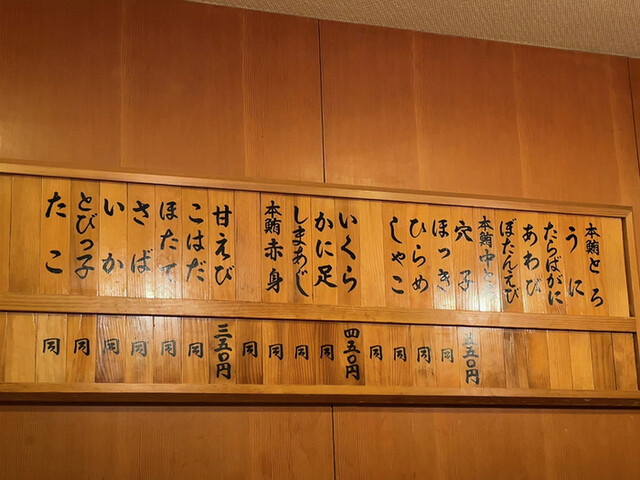 本鮪とろ
うに
たらばがに
あわび
ぼたんえび
本鮪中とろ
穴子
ほっき
ひらめ
しゃこ
いくら
かに足
しまあじ
本鮪赤身
甘えび
こはだ
ほたて
さば
いか
とびっ子
たこ
五五〇円
同
同
同
同
四五〇円
同
同
同
同
三五〇円
同
同
同
同
同
同